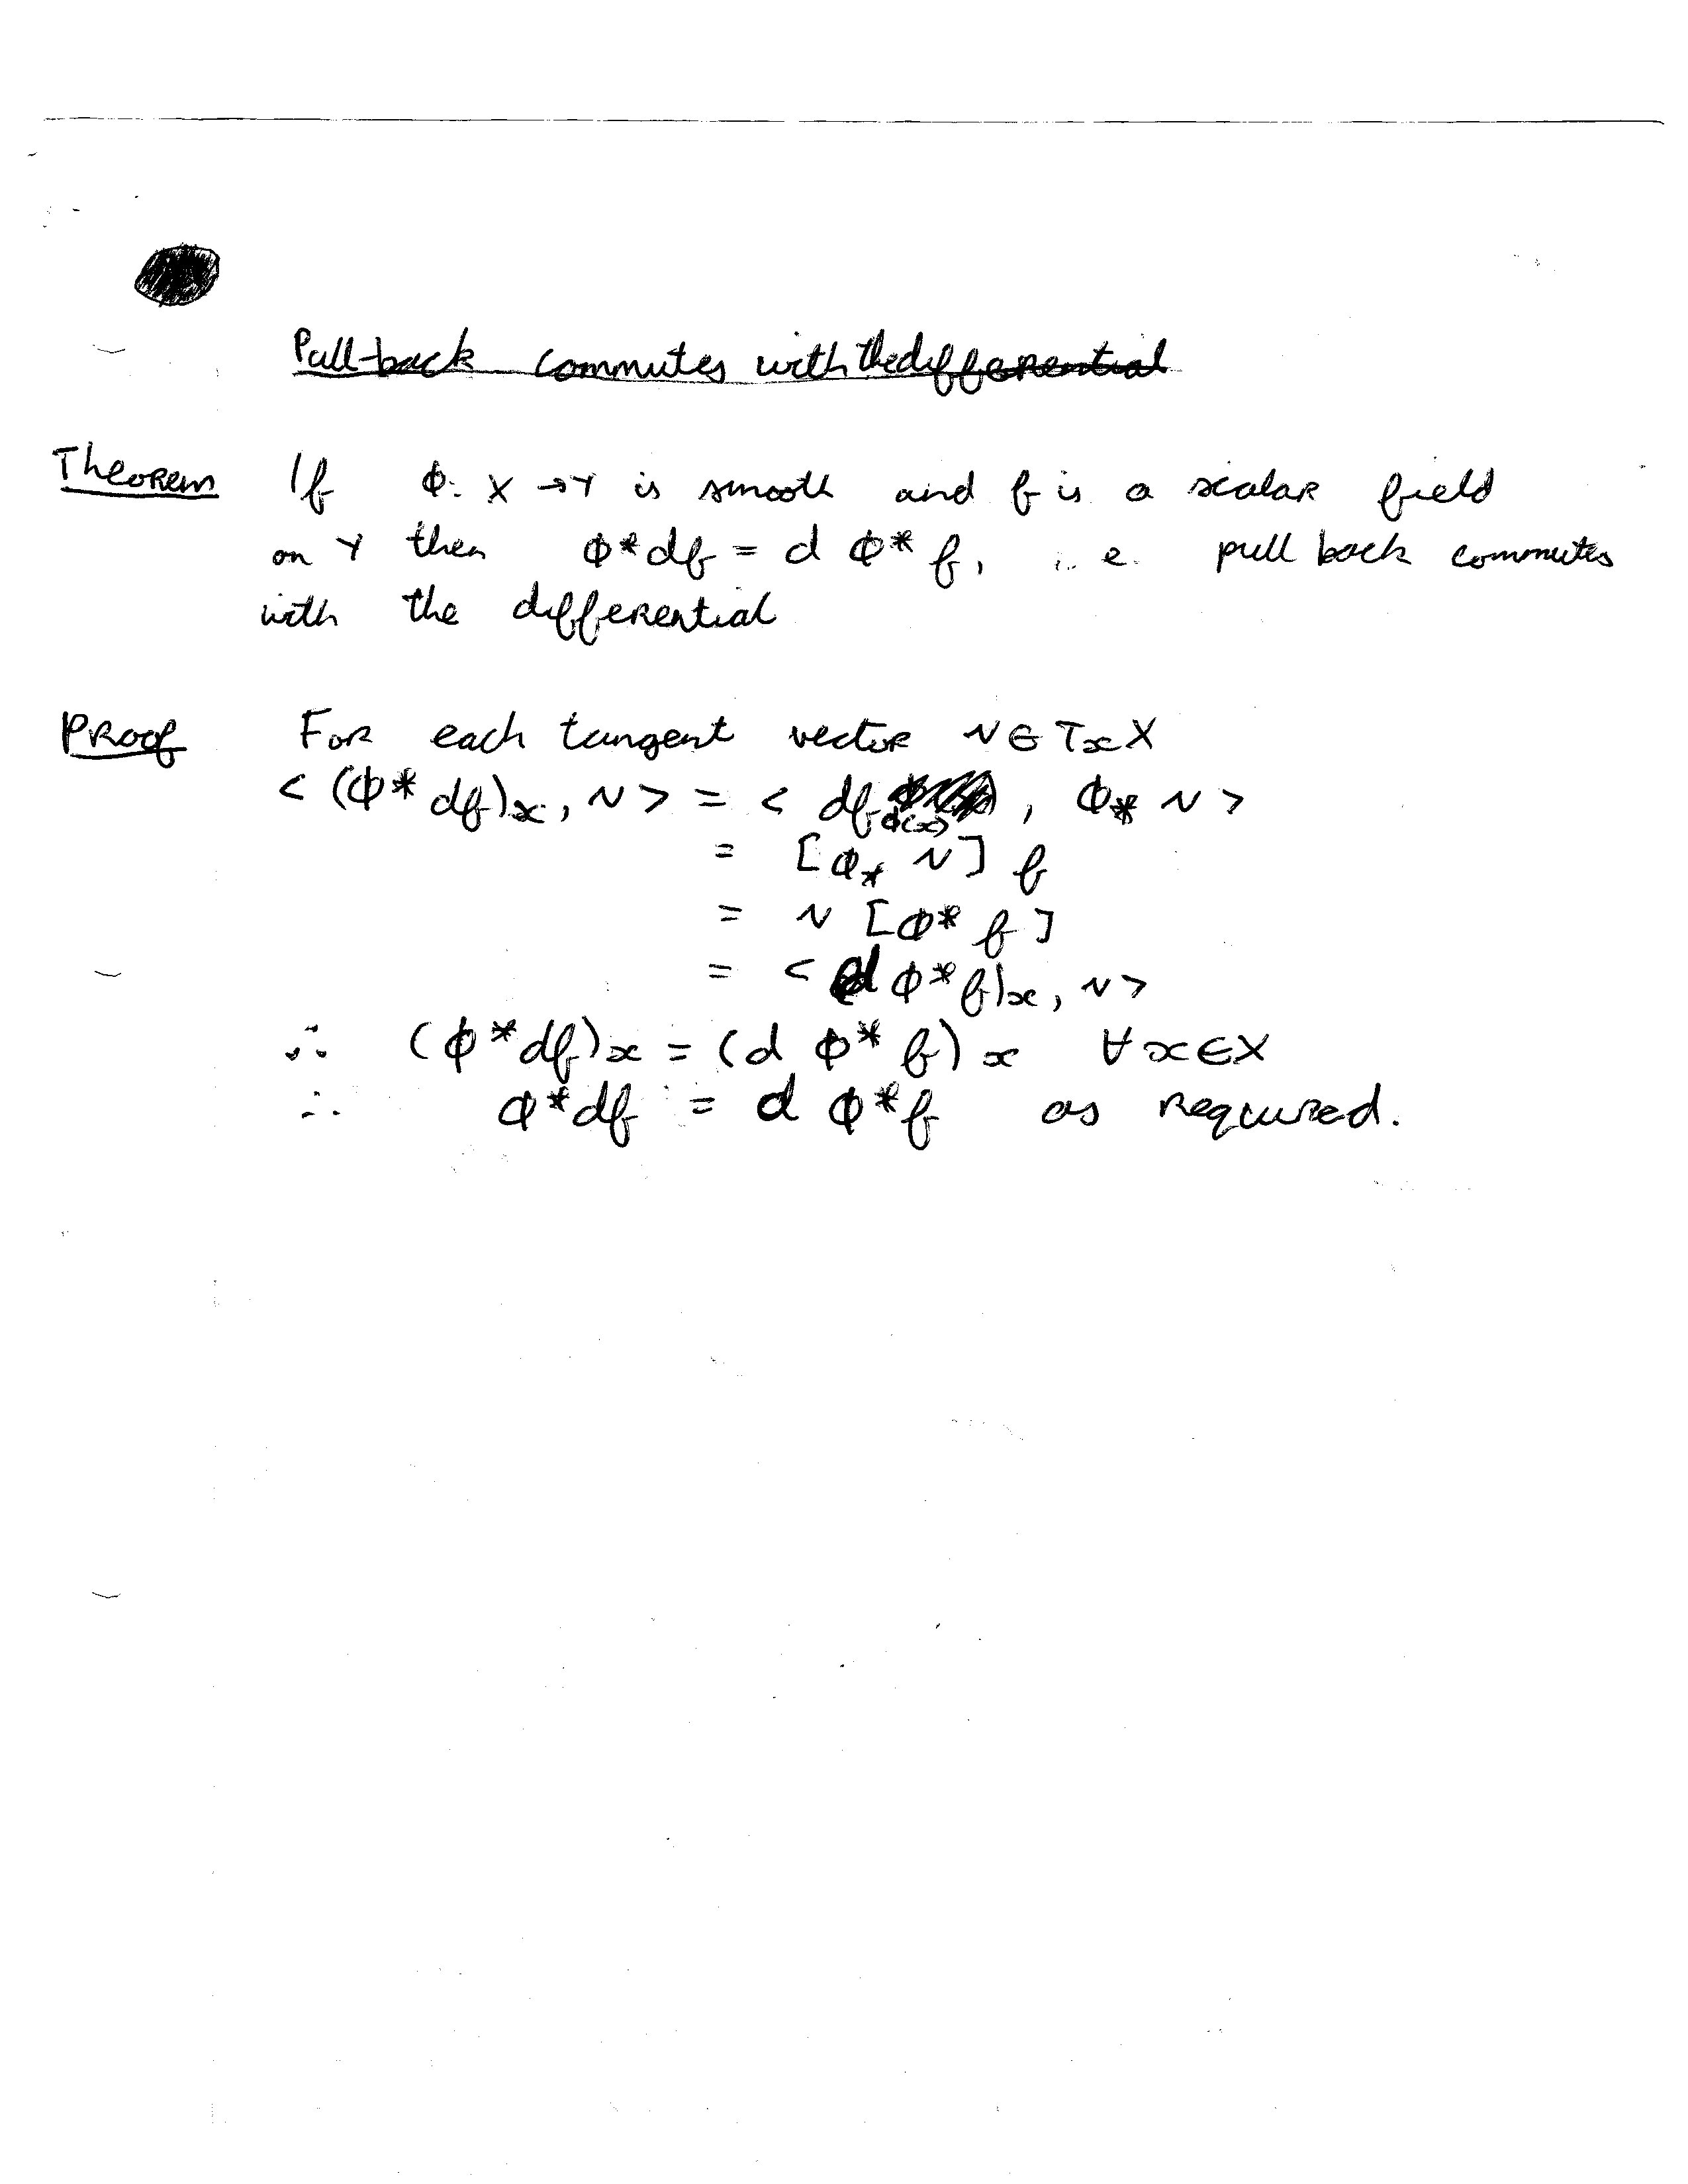 Pull-back commutes with the differential
Theorem If ϕ: X → Y is smooth and f is a scalar field
on Y then ϕ* df = d ϕ* f, i.e. pull back commutes
with the differential
Proof For each tangent vector v ∈ TxX
< (ϕ* df)x, v > = < df ϕ(x), ϕ* v >
= [ϕ* v] f
= v [ϕ* f]
= < d ϕ* f)x, v >
∴ (ϕ* df)x = (d ϕ* f)x ∀ x ∈ X
∴ ϕ* df = d ϕ* f as required.